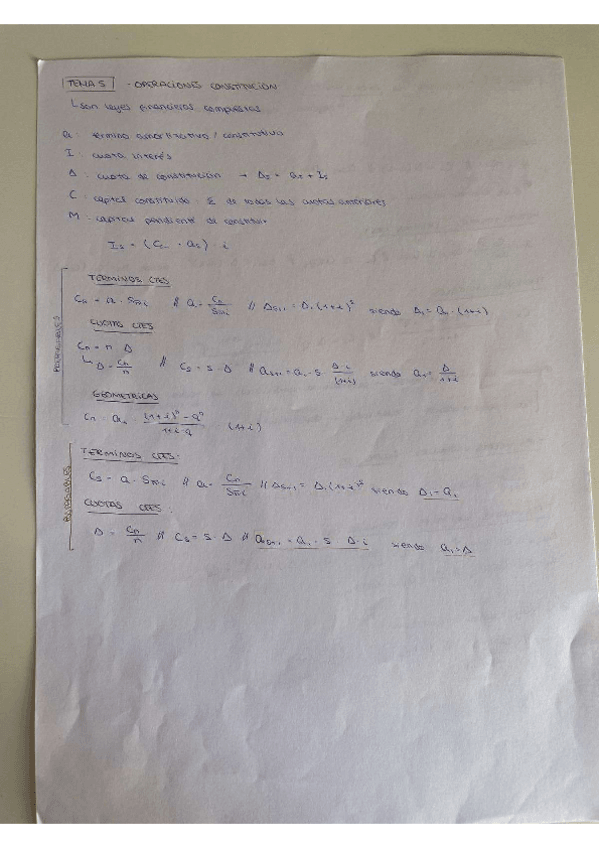 TEMA 5 - OPERACIONES CONSTITUCION
Lson leyes financieras compuestas
a : término amortizativo / constitutivo
I : cuota interés
Δ : cuota de constitución → Δs = as + Is
C : capital constituido : Σ de todas las cuotas anteriores
M : capital pendiente de constituir
Is = (Cs-1 + as) · i
TERMINOS CTES
Cs = a · Sn¬i // a = Cn/Sn¬i // Δs+1 = Δ1 (1+i)^s siendo Δ1 = a · (1+i)
CUOTAS CTES
Cn = n · Δ
L Δ = Cn/n // Cs = s · Δ // as+1 = a1 - s Δ·i/(1+i) siendo a1 = Δ/1+i
GEOMETRICAS
Cn = a1 · (1+i)^n - q^n/1+i-q (1+i)
TERMINOS CTES.
Cs = a · Sn¬i // a = Cn/Sn¬i // Δs+1 = Δ1 (1+i)^s siendo Δ1 = a1
CUOTAS CTES :
Δ = Cn/n // Cs = s · Δ // as+1 = a1 - s · Δ · i siendo a1 = Δ